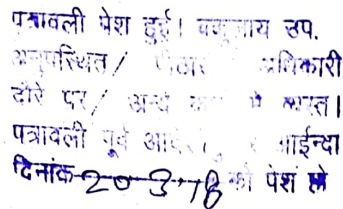 पत्रावली पेश हुई। वकुलाय उप.
अनुपस्थित/ अधिकारी
दौरे पर/ अन्य में व्यस्त।
पत्रावली पूर्व आईन्दा
दिनांक 20-3-18 को पेश हो